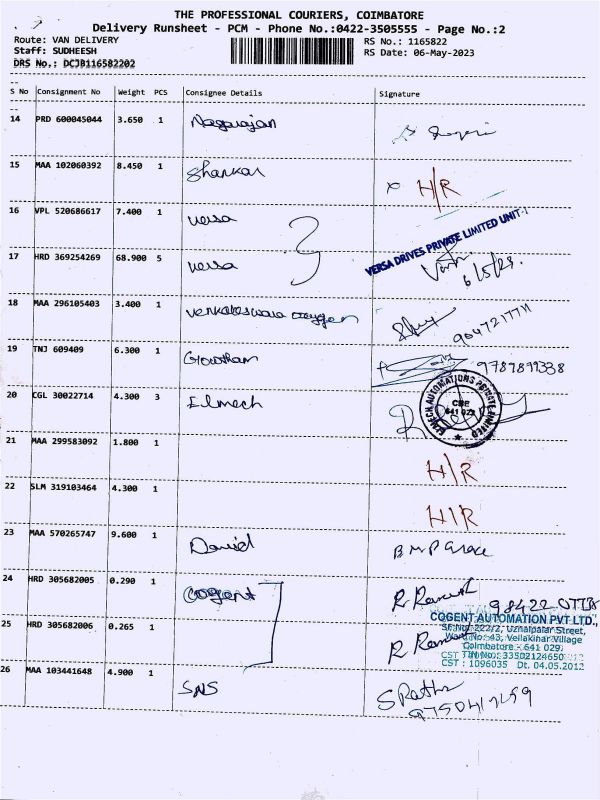 THE PROFESSIONAL COURIERS, COIMBATORE
Delivery Runsheet - PCM - Phone No.:0422-3505555 - Page No.:2
Route: VAN DELIVERY
RS No.: 1165822
Staff: SUDHEESH
RS Date: 06-May-2023
DRS No.: DCJB116582202
S No Consignment No Weight PCS Consignee Details Signature
14 PRD 600045044 3.650 1 Nagarajan
15 MAA 102060392 8.450 1 Shankar x H/R
16 VPL 520686617 7.400 1 versa
VERSA DRIVES PRIVATE LIMITED UNIT-I
17 HRD 369254269 68.900 5 versa 6/5/23.
18 MAA 296105403 3.400 1 venkateswara oxygen 9047217711
19 TNJ 609409 6.300 1 Gowtham 9787899338
20 CGL 30022714 4.300 3 Elmech
ELMECH AUTOMATIONS PRIVATE LIMITED
CBE
641 022
21 MAA 299583092 1.800 1 H/R
22 SLM 319103464 4.300 1 H/R
23 MAA 570265747 9.600 1 David B M P Grace
24 HRD 305682005 0.290 1 cogent R Ramesh
COGENT AUTOMATION PVT LTD.,
SF.No: 222/2, Uznaipalar Street,
Ward No: 43, Vellakinar Village
25 HRD 305682006 0.265 1 R
Coimbatore - 641 029.
CST TIN No: 33502124650
CST : 1096035 Dt. 04.05.2012
26 MAA 103441648 4.900 1 SNS